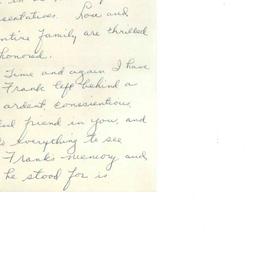 sentatives. Lou and
entire family are thrilled
honored.
Time and again I have
Frank left behind a
ardent, conscientious
friend in you, and
everything to see
Frank's memory and
he stood for is